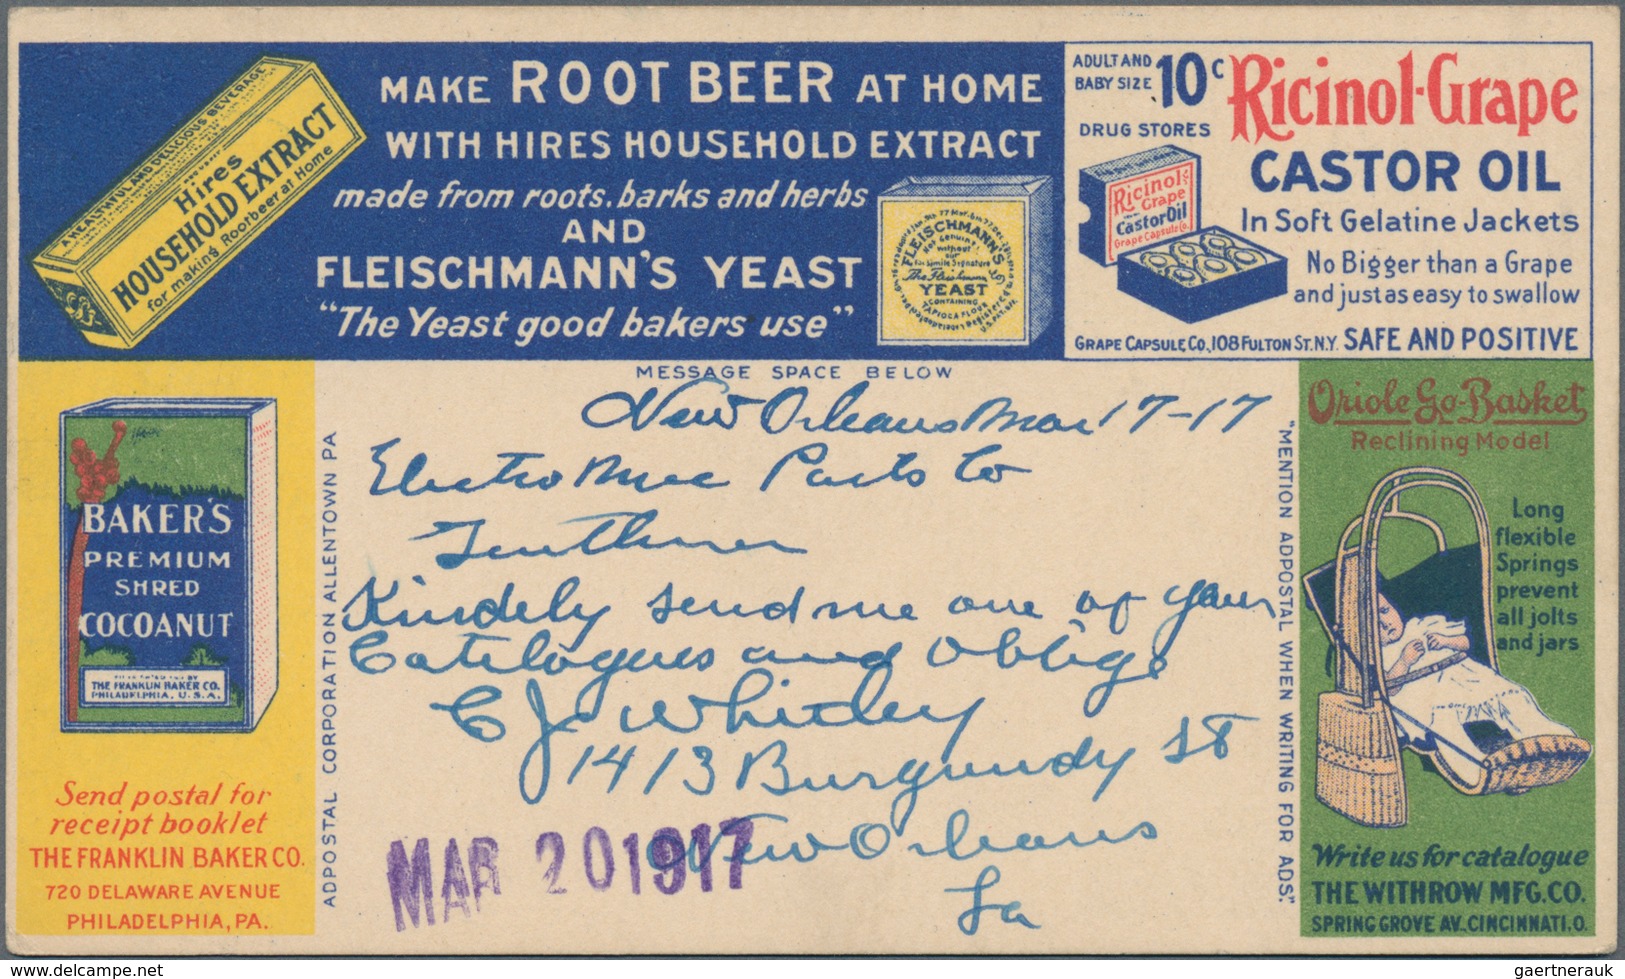 MAKE ROOT BEER AT HOME
WITH HIRES HOUSEHOLD EXTRACT
made from roots, barks and herbs
AND
FLEISCHMANN'S YEAST
"The Yeast good bakers use"
A HEALTHFUL AND DELICIOUS BEVERAGE
Hires
HOUSEHOLD EXTRACT
for making Rootbeer at Home
FLEISCHMANN'S
Not Genuine
without
our
Fac Simile Signature
The Fleischmann Co
YEAST
CONTAINING
TAPIOCA FLOUR
U.S. PAT. OFF.
ADULT AND
BABY SIZE 10c
DRUG STORES
Ricinol-Grape
CASTOR OIL
In Soft Gelatine Jackets
No Bigger than a Grape
and just as easy to swallow
GRAPE CAPSULE CO., 108 FULTON ST. N.Y. SAFE AND POSITIVE
Ricinol-
Grape
Castor Oil
Grape Capsule Co.
MESSAGE SPACE BELOW
BAKER'S
PREMIUM
SHRED
COCOANUT
THE FRANKLIN BAKER CO.
PHILADELPHIA, U.S.A.
Send postal for
receipt booklet
THE FRANKLIN BAKER CO.
720 DELAWARE AVENUE
PHILADELPHIA, PA.
ADPOSTAL CORPORATION ALLENTOWN PA
New Orleans Mar 17-17
Electro Mec Parts Co
Kindely send me one of your
Catelogues and oblige
C J Whitley
1413 Burgundy St
New Orleans
La
MAR 20 1917
"MENTION ADPOSTAL WHEN WRITING FOR ADS."
Oriole Go-Basket
Reclining Model
Long
flexible
Springs
prevent
all jolts
and jars
Write us for catalogue
THE WITHROW MFG. CO.
SPRING GROVE AV. CINCINNATI. O.
www.delcampe.net
gaertnerauk